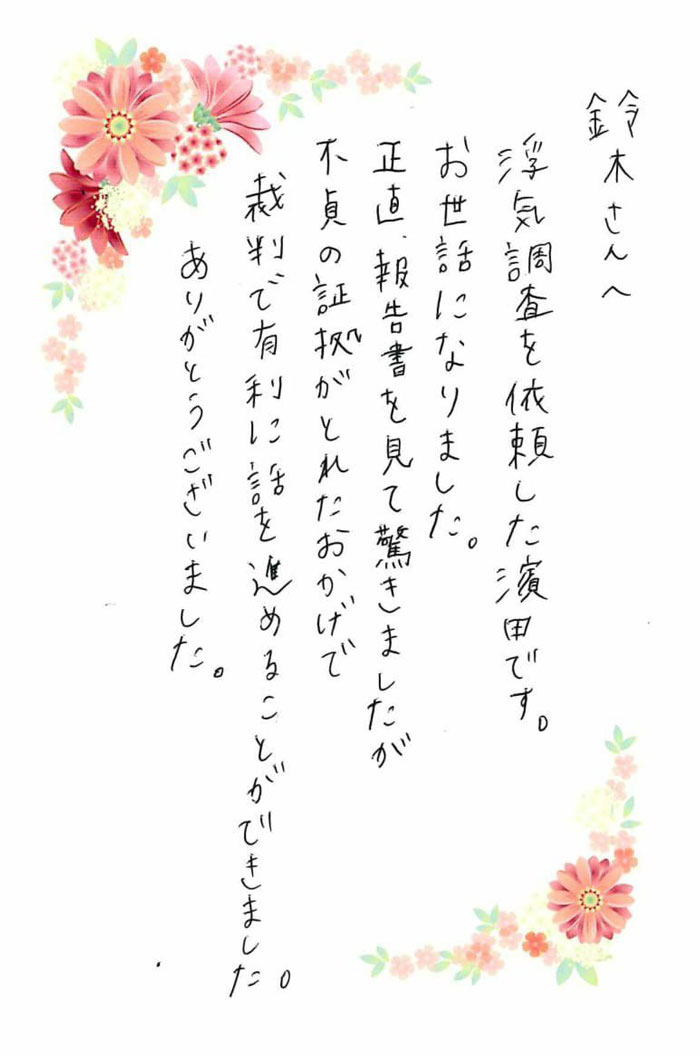 鈴木さんへ
浮気調査を依頼した濱田です。
お世話になりました。
正直、報告書を見て驚きましたが
不貞の証拠がとれたおかげで
裁判で有利に話を進めることができました。
ありがとうございました。